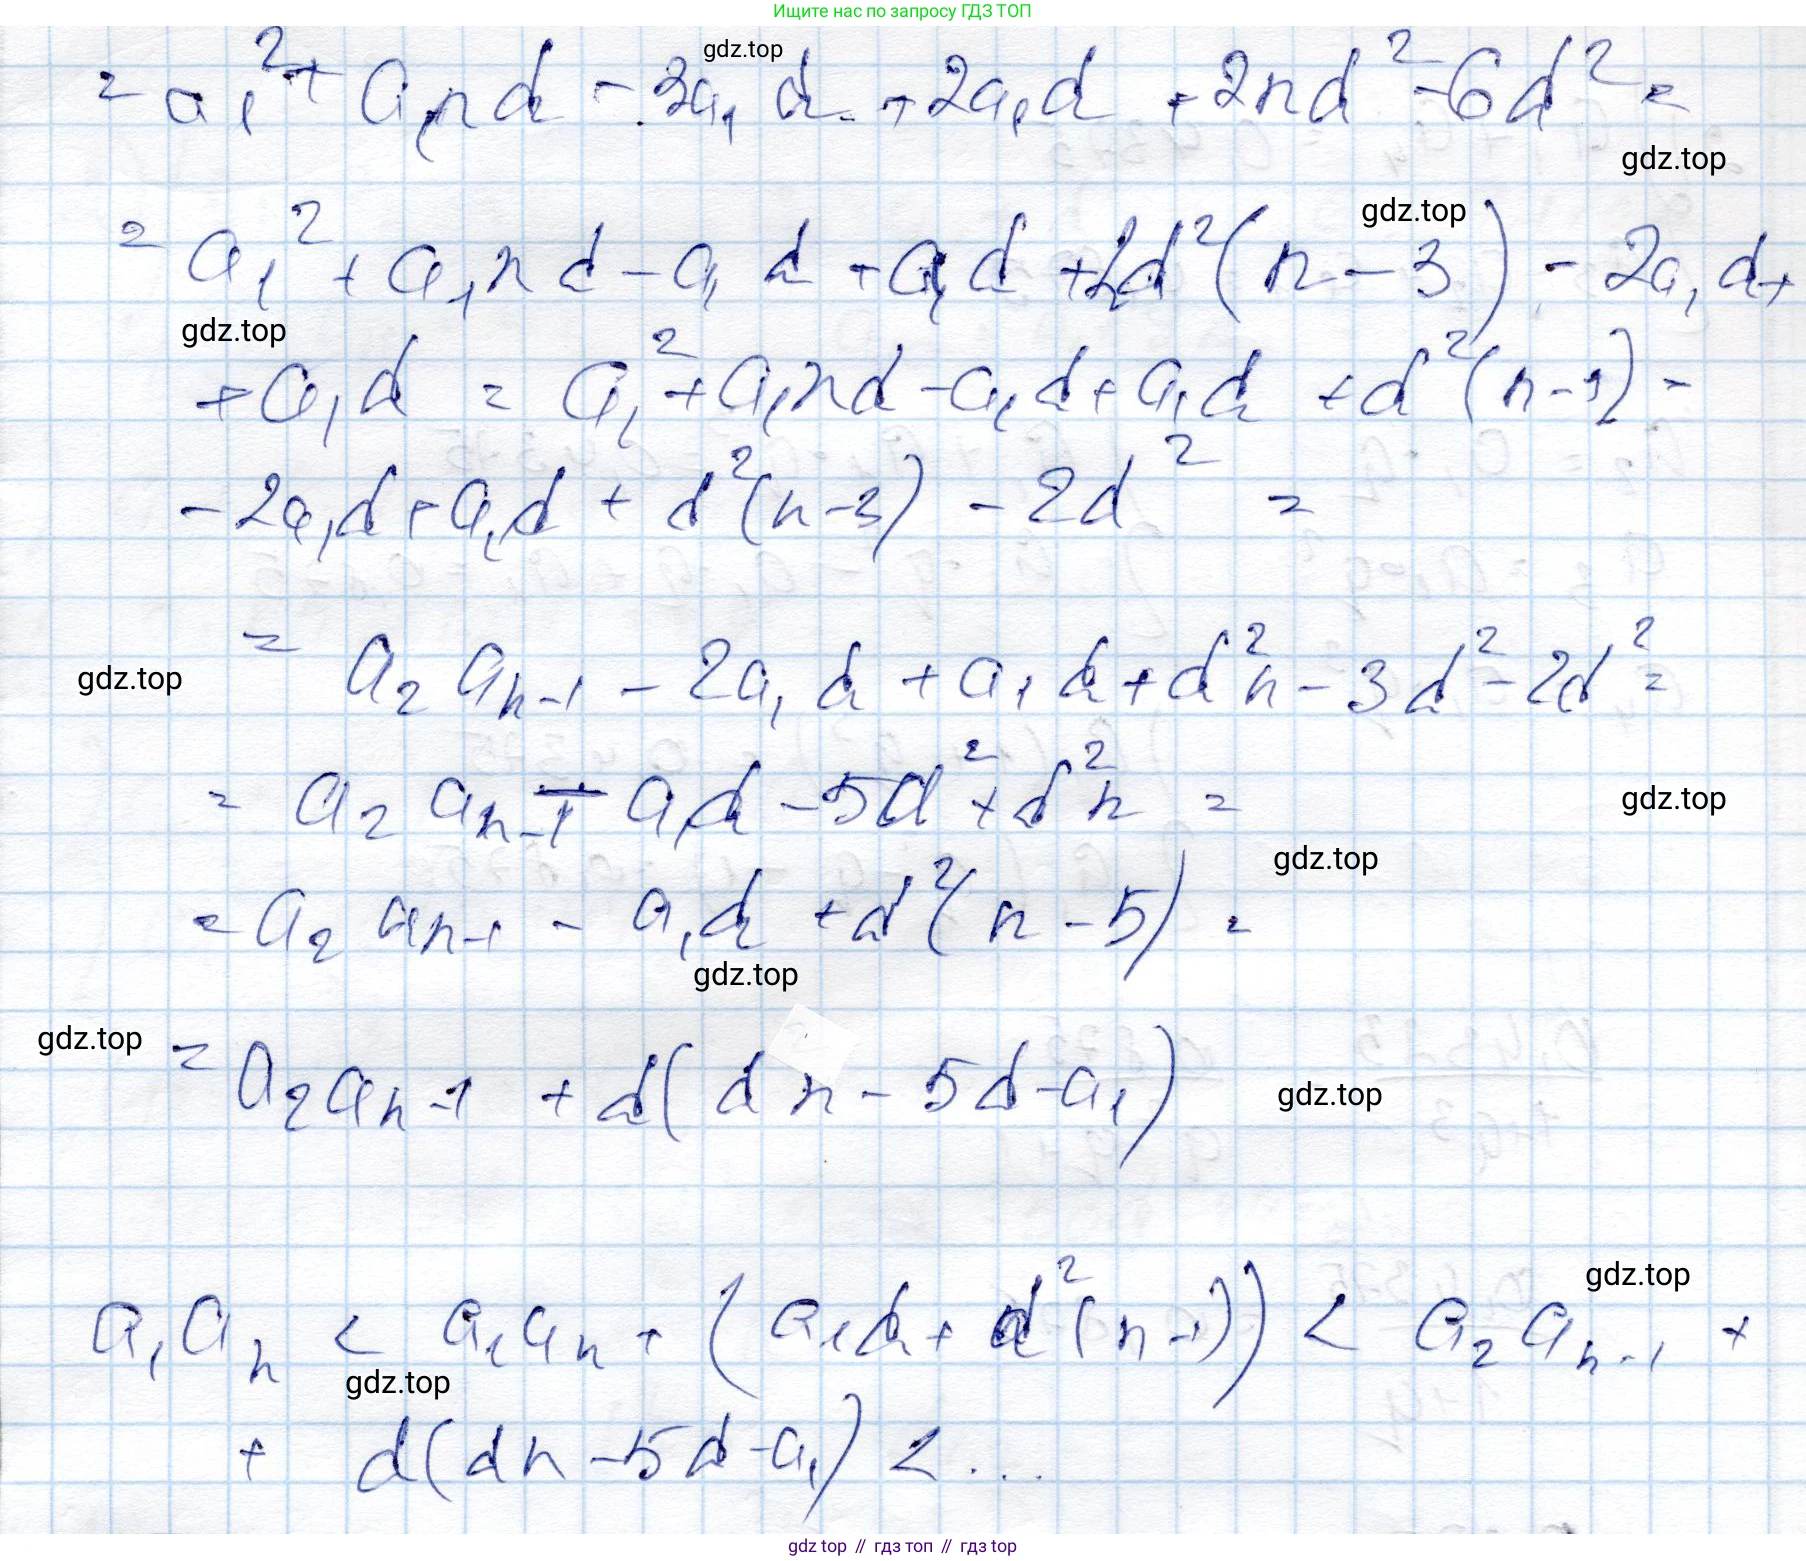 Ищите нас по запросу ГДЗ ТОП
gdz.top
= a₁² + a₁nd - 3a₁d + 2a₁d + 2nd² - 6d² =
gdz.top
gdz.top
= a₁² + a₁nd - a₁d + a₁d + 2d²(n - 3) - 2a₁d +
gdz.top
+ a₁d = a₁² + a₁nd - a₁d + a₁d + d²(n - 3) -
- 2a₁d + a₁d + d²(n - 3) - 2d² =
= a₂ aₙ₋₁ - 2a₁d + a₁d + d²n - 3d² - 2d² =
gdz.top
= a₂ aₙ₋₁ - a₁d - 5d² + d²n =
gdz.top
gdz.top
= a₂ aₙ₋₁ - a₁d + d²(n - 5) =
gdz.top
gdz.top
= a₂aₙ₋₁ + d(dn - 5d - a₁)
gdz.top
gdz.top
a₁aₙ < a₁aₙ + (a₁d + d²(n - 1)) < a₂aₙ₋₁ +
gdz.top
+ d(dn - 5d - a₁) < ...
gdz top // гдз топ // гдз top